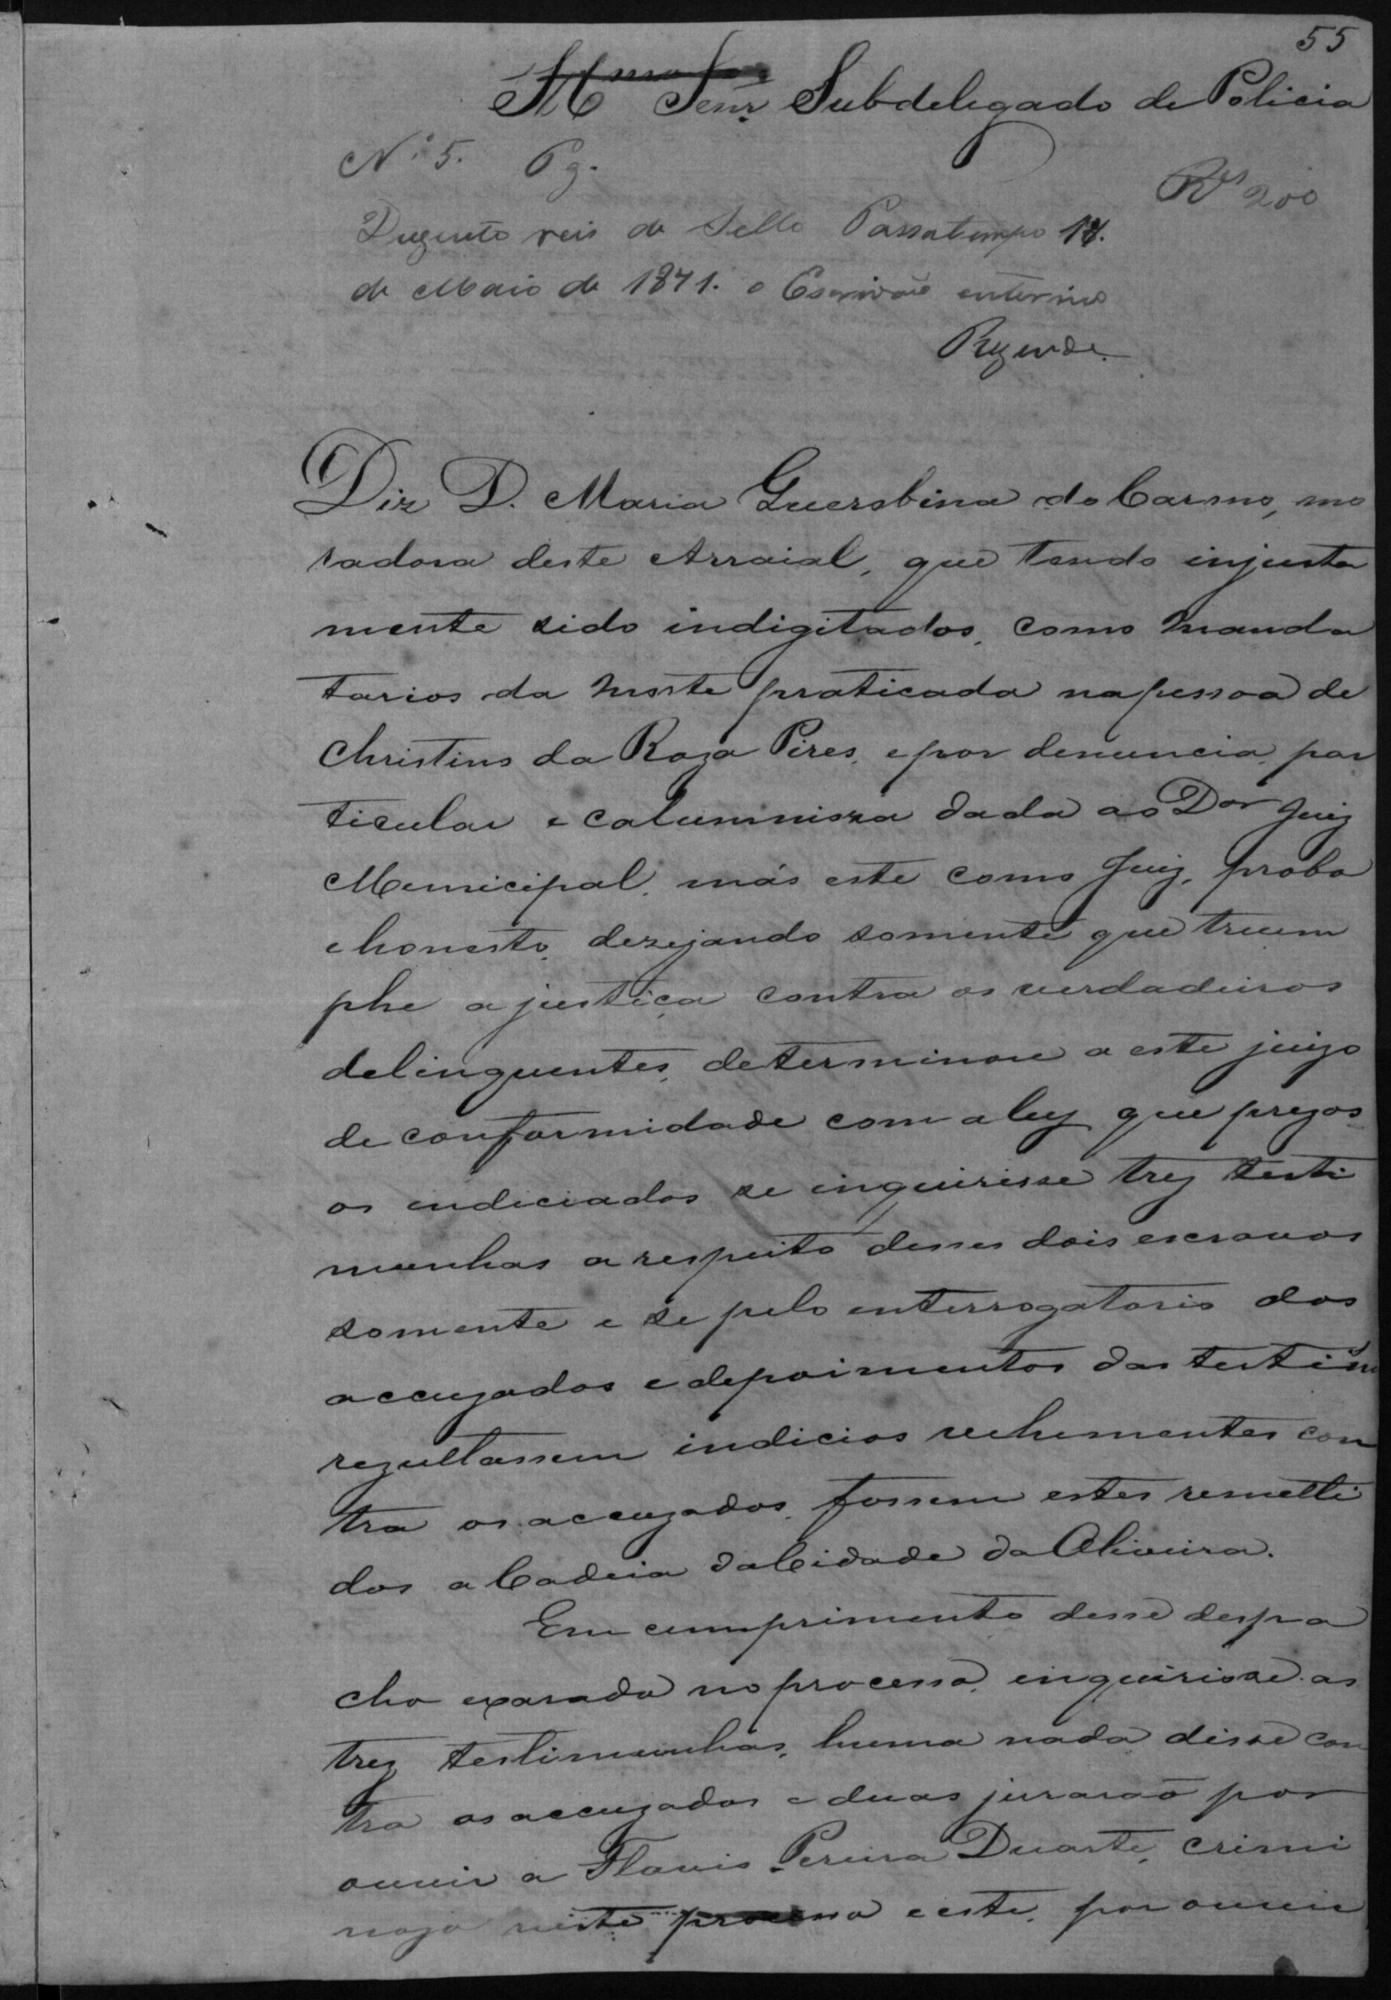 55
Illmo Senr Subdelegado de Policia
Nº 5. Pg.
Rs 200
Duzentos reis de Sello Passatempo 17.
de Maio de 1871. o Escrivão enterino
Rezende.
Diz D. Maria Guersbina do Carmo, mo
radora deste Arraial, que tendo injusta
mente sido indigitados, como manda
tarios da morte praticada na pessoa de
Christino da Roza Pires, e por denuncia par
ticular e calumnioza dada ao Dor Juiz
Municipal, más este como Juiz, probo
e honesto, dezejando somente que trium
phe a justiça contra os verdadeiros
delinquentes, determinou a este juizo
de conformidade com a ley que prezos
os endiciados se inquirisse trez testi
munhas a respeito desses dois escravos
somente e se pelo enterrogatorio dos
accuzados e depoimentos das testim
rezultassem indicios vehementes con
tra os accuzados, fossem estes remetti
dos a Cadeia da Cidade da Oliveira.
Em cumprimento desse despa
cho exarado no processo, enquirisse as
trez testimunhas, huma nada disse con
tra os accuzados e duas jurarão por
ouvir a Flavio Pereira Duarte, crimi
nozo neste processo e este, por ouvir